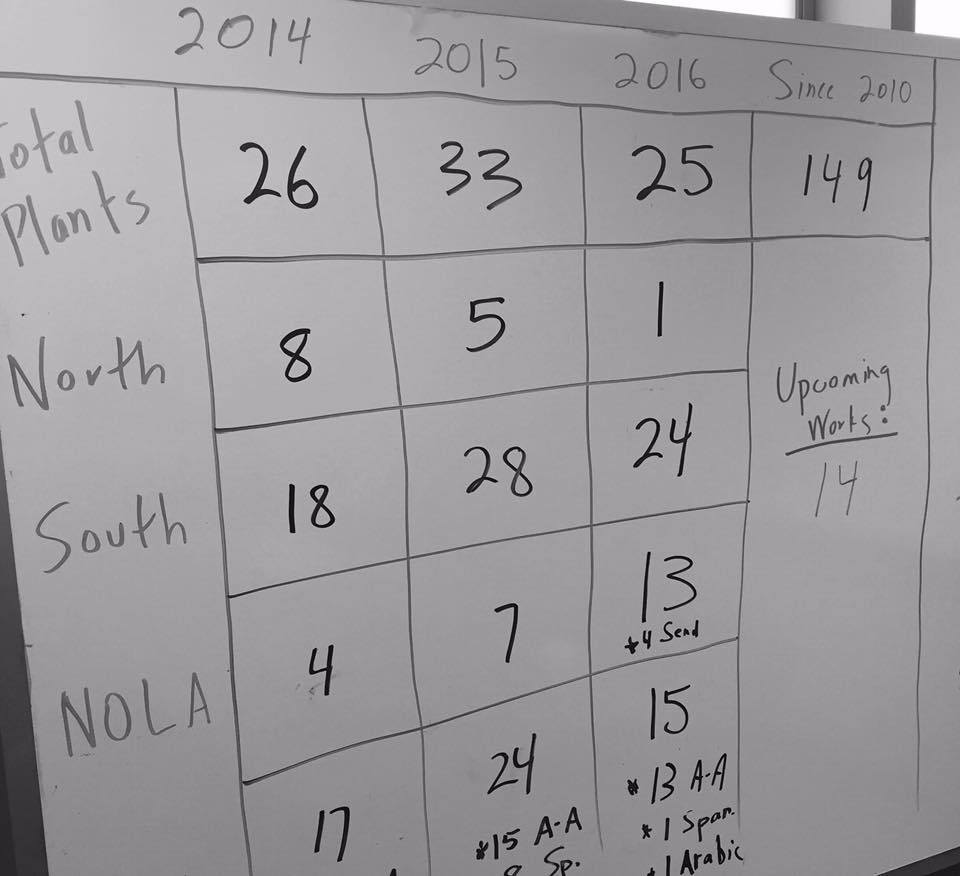 2014 2015 2016 Since 2010
Total Plants 26 33 25 149
North 8 5 1
Upcoming
Works:
14
South 18 28 24
NOLA 4 7 13
*4 Send
17 24 15
*15 A-A *13 A-A
Sp. *1 Span.
*1 Arabic